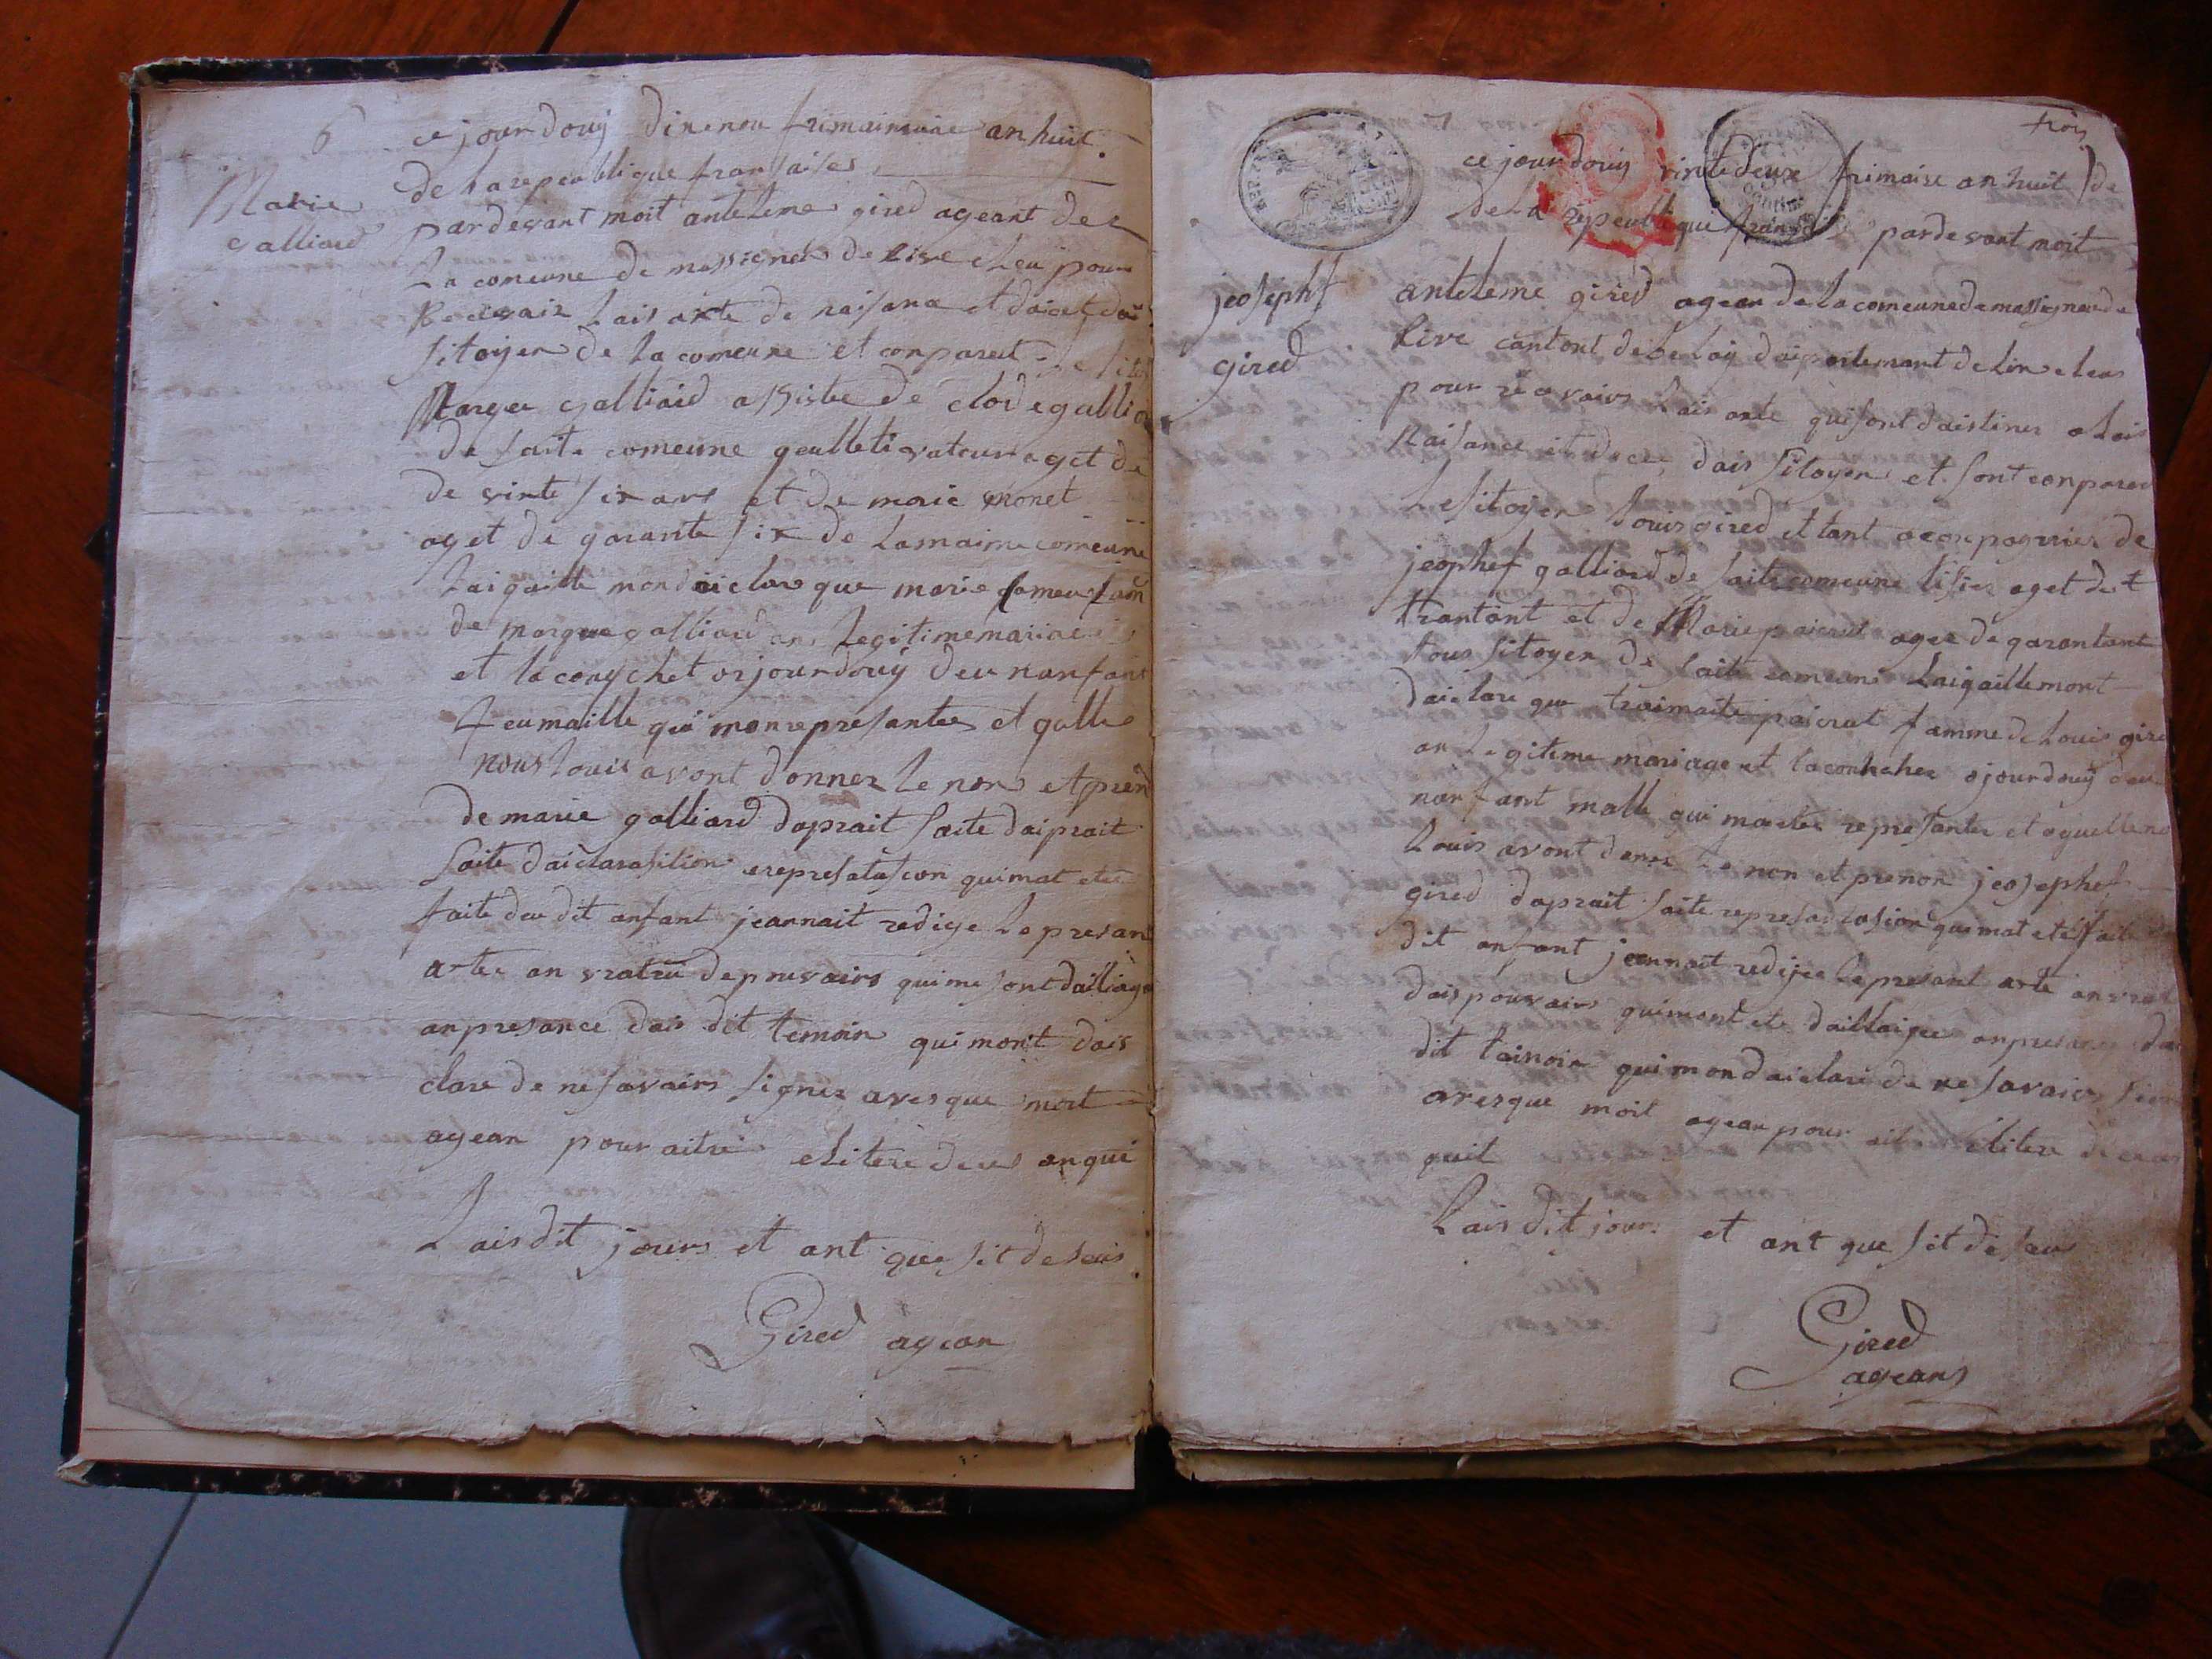 6
ce jour douy dixneu frimaimaire an huit
de la repeablique fransaises
Marie
Galliard
pardevant moit anteleme gired ageant de
La comeune de massigneu de rive eleu pour
Recevair lais axte de naisance et daices dai
sitoyen de la comeune et conpareut le sito
Marger galliard assiste de clode gallia
de saite comeune qeulletivateur aget de
de vinte six ans et de marie monet
aget de qarante six de la maime comeune
laiqaille mon daiclare que marie
de margue galliard an legitime mariae
et la couchet ojourdouy deu nanfant
feumaille qui mon represantee et qalle
nous louis avont donner le non et pren
de marie galliard daprait saite daiprait
saite daiclarasition e represatasion quimat etee
faite deu dit anfant jeannait redige le presant
acte an vratu de pouvairs qui me sont dailiag
anpresance dais dit temoin qui mont dais
clare de ne savairs signer avesque moit
agean pour aitre eliteredeu anqui
Lais dit jours et ant que sit deseus
Gired agean
trois
ce jour douy vinte deux frimaire an huit de
de la repeublique fransais pardevant moit
jeosephf
gired
anteleme gired agean de la comeune de massigneu de
Rive cantont de belay daipartemant de lin eleu
pour resavairs lais axte quisont daistiner a lais
Naisance et dece dais sitoyen et sont conpareu
Le sitoyen louis gired ettant aconpagnier de
jeophef galliard de saite comeune tisier aget de t
trantant et de Marie paicrut agee de qarantant
tous sitoyen de saite comeune laiqaille mont
daiclare que paicrut famme de louis gire
an legiteme mariage et la couchee ojourdouy deu
nanfant malle qui represantee et aquelle no
louis avont doner le non et prenon jeosephef
gired daprait saite represantasion quimat etee faite
dit anfant jeannait redijee le presant axte an vrat
dais pouvairs quimont ete dailaigee anpresance dai
dit taimoin quimon daiclare de ne savairs sign
avesque moit agean pour ait eliteu
quit
Lais dit jour et ant que sit deseus
Gired
ageans